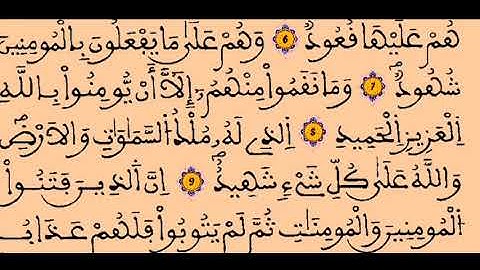 هُمْ عَلَيْهَا قُعُودٌ 6 وَهُمْ عَلَىٰ مَا يَفْعَلُونَ بِالْمُومِنِينَ
شُهُودٌ 7 وَمَا نَقَمُواْ مِنْهُمُۥٓ إِلَّآ أَنْ يُّومِنُواْ بِاللَّهِ
اِلْعَزِيزِ اِلْحَمِيدِ 8 اِلذِے لَهُۥ مُلْكُ السَّمَٰوَٰتِ وَالَارْضِ
وَاللَّهُ عَلَىٰ كُلِّ شَےْءٍ شَهِيدٌ 9 اِنَّ اَلذِينَ فَتَنُواْ
اُلْمُومِنِينَ وَالْمُومِنَٰتِ ثُمَّ لَمْ يَتُوبُواْ فَلَهُمْ عَذَابُ